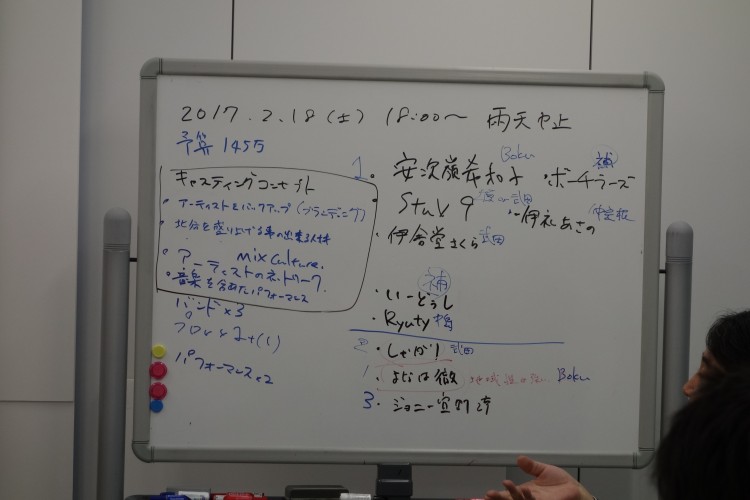 2017.2.18(土) 18:00〜 雨天中止
予算 145万
キャスティングコンセプト
・アーティストとバックアップ(ブランディング)
・北谷を盛り上げる事の出来る人材
・mix culture.
アーティストのネットワーク
・音楽を含めたパフォーマンス
バンド×3
パフォーマンス×2
1. 安次嶺希和子 Boku
・ボーチラーズ 補
Stuv 9 武田
・伊礼あさの 仲宗根
・伊舎堂さくら 武田
補
・いーどぅし
・Ryuty
2・しゃかり 武田
1. よなは徹 Boku
3・ジョニー宜野湾